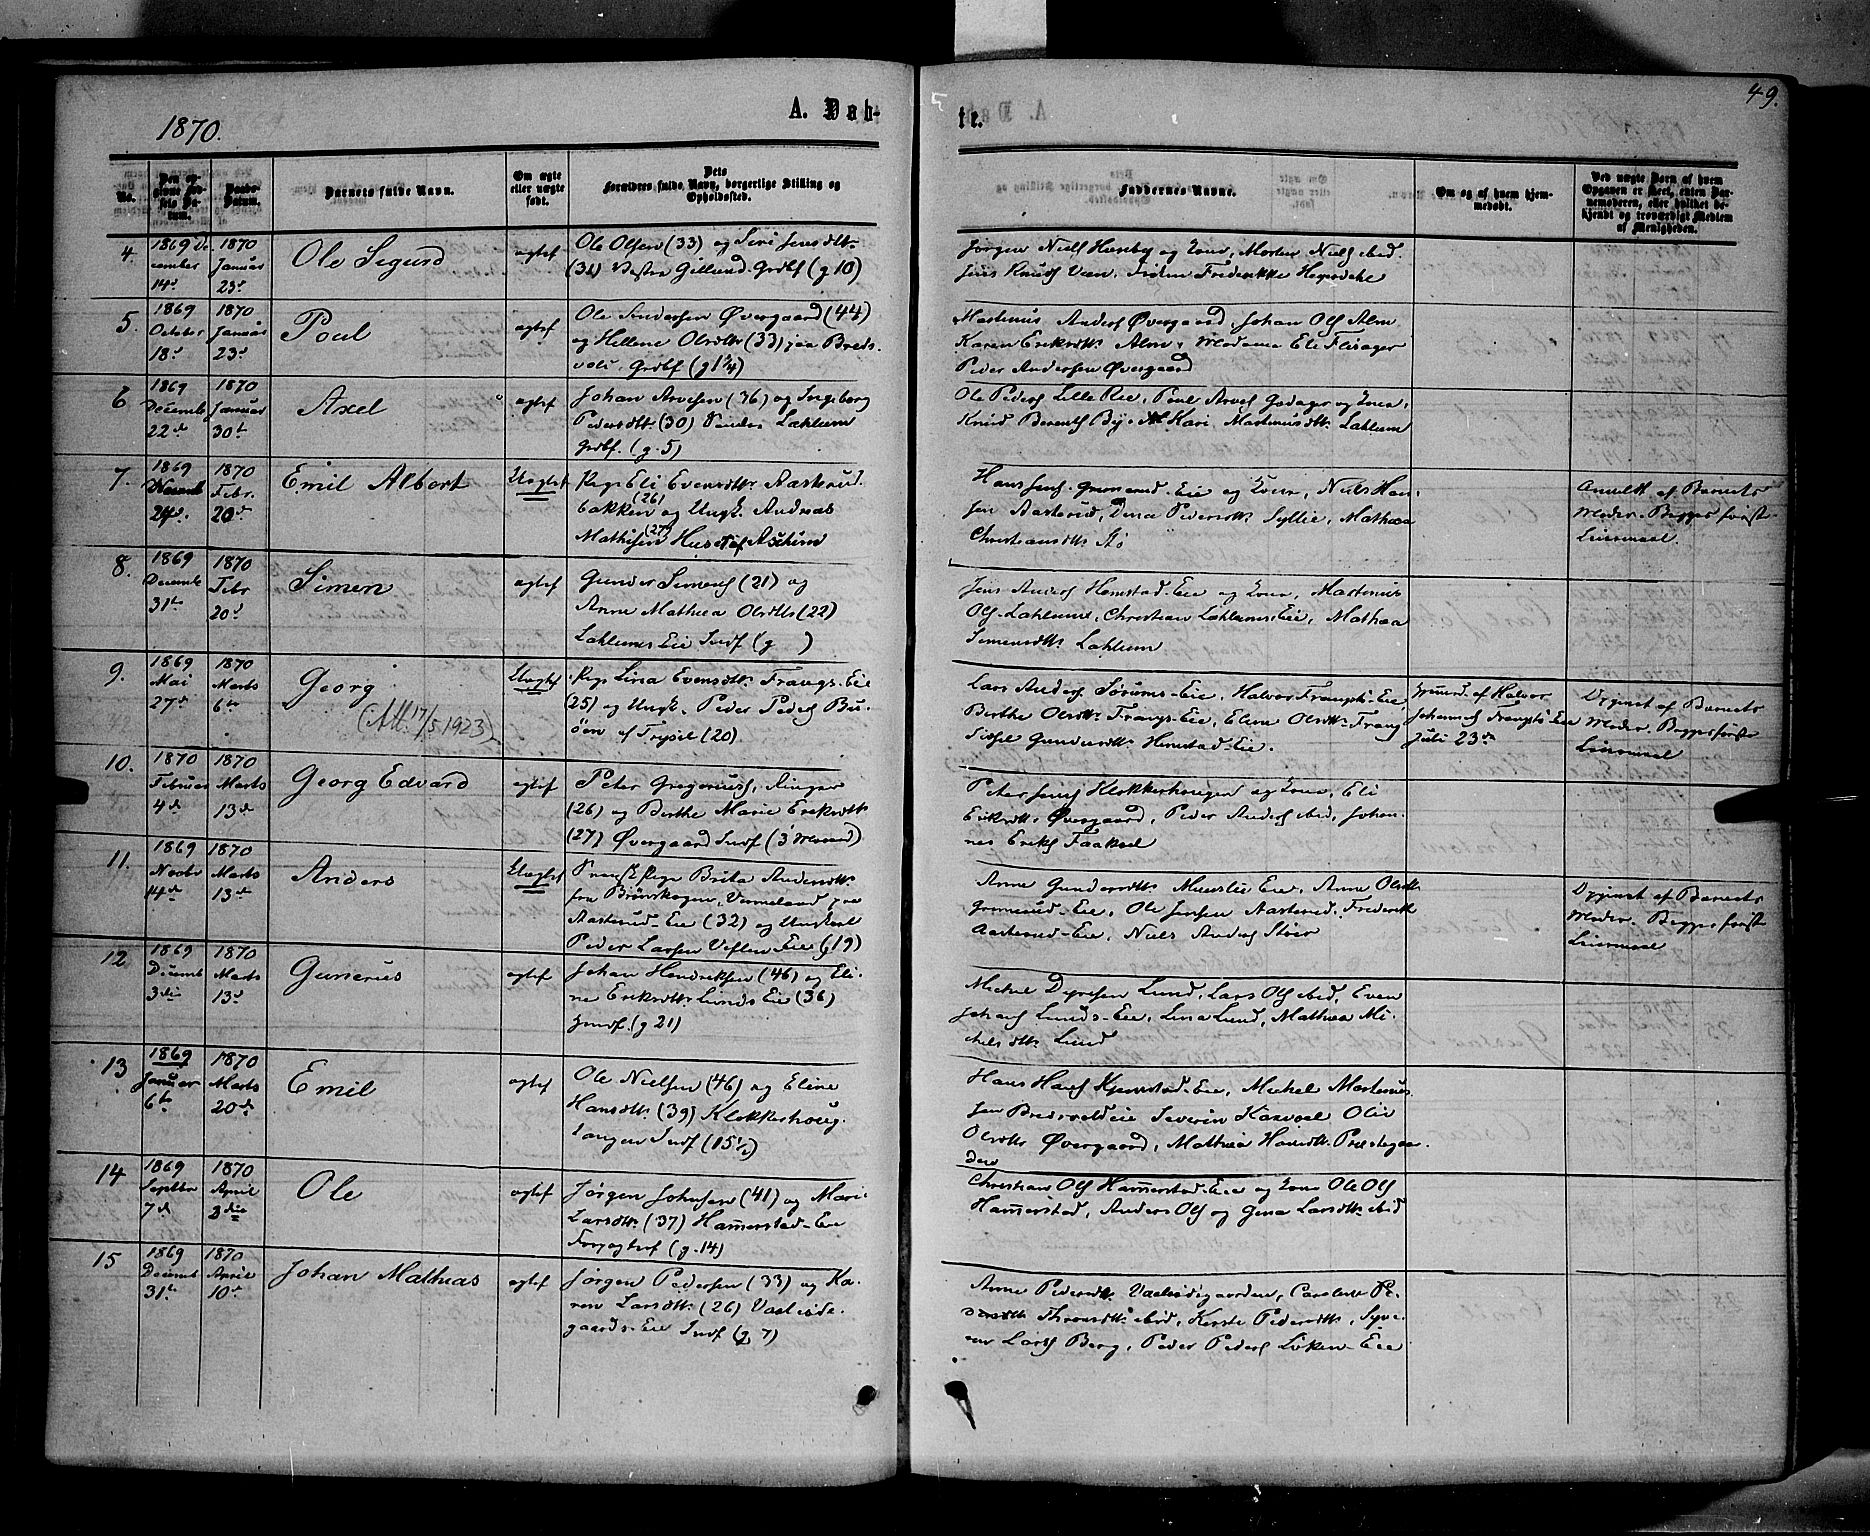 49.
1870.
A. Dåb-
te.
No.
Den opgivne Fødsels Datum.
Daabs-Datum.
Barnets fulde Navn.
Om ægte eller uægte født.
Dets Forældres fulde Navn, borgerlige Stilling og Opholdssted.
Faddernes Navne.
Om og af hvem hjemmedøbt.
Ved uægte Børn af hvem Opgaven er skeet, enten Barnemoderen, eller hvilket bekjendt og troværdigt Medlem af Menigheden.
4.
1869 December 14d
1870 Januar 23d
Ole Sigurd
ægtef
Ole Olsen (33) og Siri Jensdttr
(31) Vestre Gillund Grdbf (g 10)
Jørgen Niels Huseby og Kone, Morten Niels ibid.
Jens Knuds Veen,
5.
1869 October 18d
1870 Januar 23d
Poul
ægtef
Ole Andersen Øvergaard (44)
og Hellene Olsdttr (33) paa Breds-
vold. Grdbf (g 1 1/4)
Martinus Anders Øvergaard, Johan Ols Alm
Karen Eriksdttr Alm, Madame Eli Flisager
Peder Andersen Øvergaard
6
1869 Decemb 22d
1870 Januar 30te
Axel
ægtef
Johan Arvesen (36) og Ingeborg
Pedersdttr (30) Søndre Læhlum
Grdbf. (g. 5)
Ole Peders Lille Rie, Poul Arves Godager og Kone,
Knud Berents By, Kari Martinusdttr Lahlum
7.
1869 Novemb 24d.
1870 Febr. 20de
Emil Albert
Uægtef
Pige Eli Evensdttr Aasterud-
bakken (26) og Ungk. Andreas
Mathisen (27) Hus
Hans Jens Grønerud-Eie og Kone, Niels Han-
sen Aasterud, Dina Pedersdttr Syllie, Mathea
Christiansdttr Stø
Anmeldt af Barnets
Moder. Begges første
Leiermaal.
8.
1869 Decemb 31te
1870 Febr 20d
Simen
ægtef
Gunder Simens (21) og
Anne Mathea Olsdttr (22)
Lahlums Eie Indf (g )
Jens Anders Hemstad-Eie og Kone, Martinius
Ols Lahlum, Christian Lahlums Eie, Mathea
Simensdttr Lahlum
9.
1869 Mai 27d
1870 Marts 6te
Georg
(Att 17/5 1923)
Uægtef
Pige Lina Evensdttr Frangs-Eie
(25) og Ungk. Peder Peders Bu-
øen af Trysil (20)
Lars Anders Sørums-Eie, Halvor Frangst. Eie,
Berthe Olsdttr Frangs-Eie, Eline Olsdttr Frang
Sidsel Gundersdttr Hemstad-Eie.
Hjemd. af Halvor
Johannes Frangst. Eie
Juli 23de
Opgivet af Barnets
Moder. Begges første
Leiermaal
10.
1870 Februar 4de
1870 Marts 13de
Georg Edvard
ægtef
Peter Gregorius, Ringer
(26) og Berthe Marie Eriksdttr
(27) Øvergaard Indf (3 Maaned)
Peter Jens Klokkerhougen og Kone, Eli
Eriksdttr Øvergaard, Peder Anders ibid, Johan-
nes Eriks Faakset
11.
1869 Novbr 14de
1870 Marts 13de
Anders
Uægtef
Svensk Pige Brita Andersdttr
fra Brunskogen, Vermeland paa
Aasterud-Eie (32) og Ungkarl
Peder Larsen Veflen Eie (19)
Anne Gundersdttr Huuslie Eie, Anne Olsdttr
Grønerud-Eie, Ole Jensen Aasterud, Frederik
Aasterud-Eie, Niels Anders Støer
Opgivet af Barnets
Moder. Begges første
Leiermaal
12
1869 Decemb 3die
1870 Marts 13d
Gunerius
ægtef
Johan Hendriksen (46) og Eli-
ne Eriksdttr Lunds Eie (36)
Indf. (g 21)
Michel Dyresen Lund, Lars Ols ibid, Even
Johans Lunds-Eie, Lina Lund, Mathea Mi-
kelsdttr Lund
13
1869 Januar 6te
1870 Marts 20de
Emil
ægtef
Ole Nielsen (46) og Eline
Hansdttr (39) Klokkerhoug-
langen Indf (15 1/2)
Hans Hans Kjemstad-Eie, Mickel Martinus-
sen Bredsvoldeie Severin Olia
Olsdttr Øvergaard, Mathea Hansdttr Prestegaar-
den
14
1869 Septbr 7d
1870 April 3die
Ole
ægtef
Jørgen Johnsen (41) og Mari
Larsdttr (37) Hamerstad-Eie
Forpagterf (g. 14)
Christian Ols Hamerstad-Eie og Kone Ole Ols
Hamerstad, Anders Ols og Gina Larsdttr ibid
15
1869 Decemb 31te
1870 April 10de
Johan Mathias
ægtef
Jørgen Pedersen (33) og Ka-
ren Larsdttr (26) Vestisde-
gaards-Eie Indf (g 7)
Anne Pedersdttr Caroline Pe-
dersdttr ibid, Kirste Pedersdttr, Syve-
rin Lars Berg, Peder Peders Løken-Eie